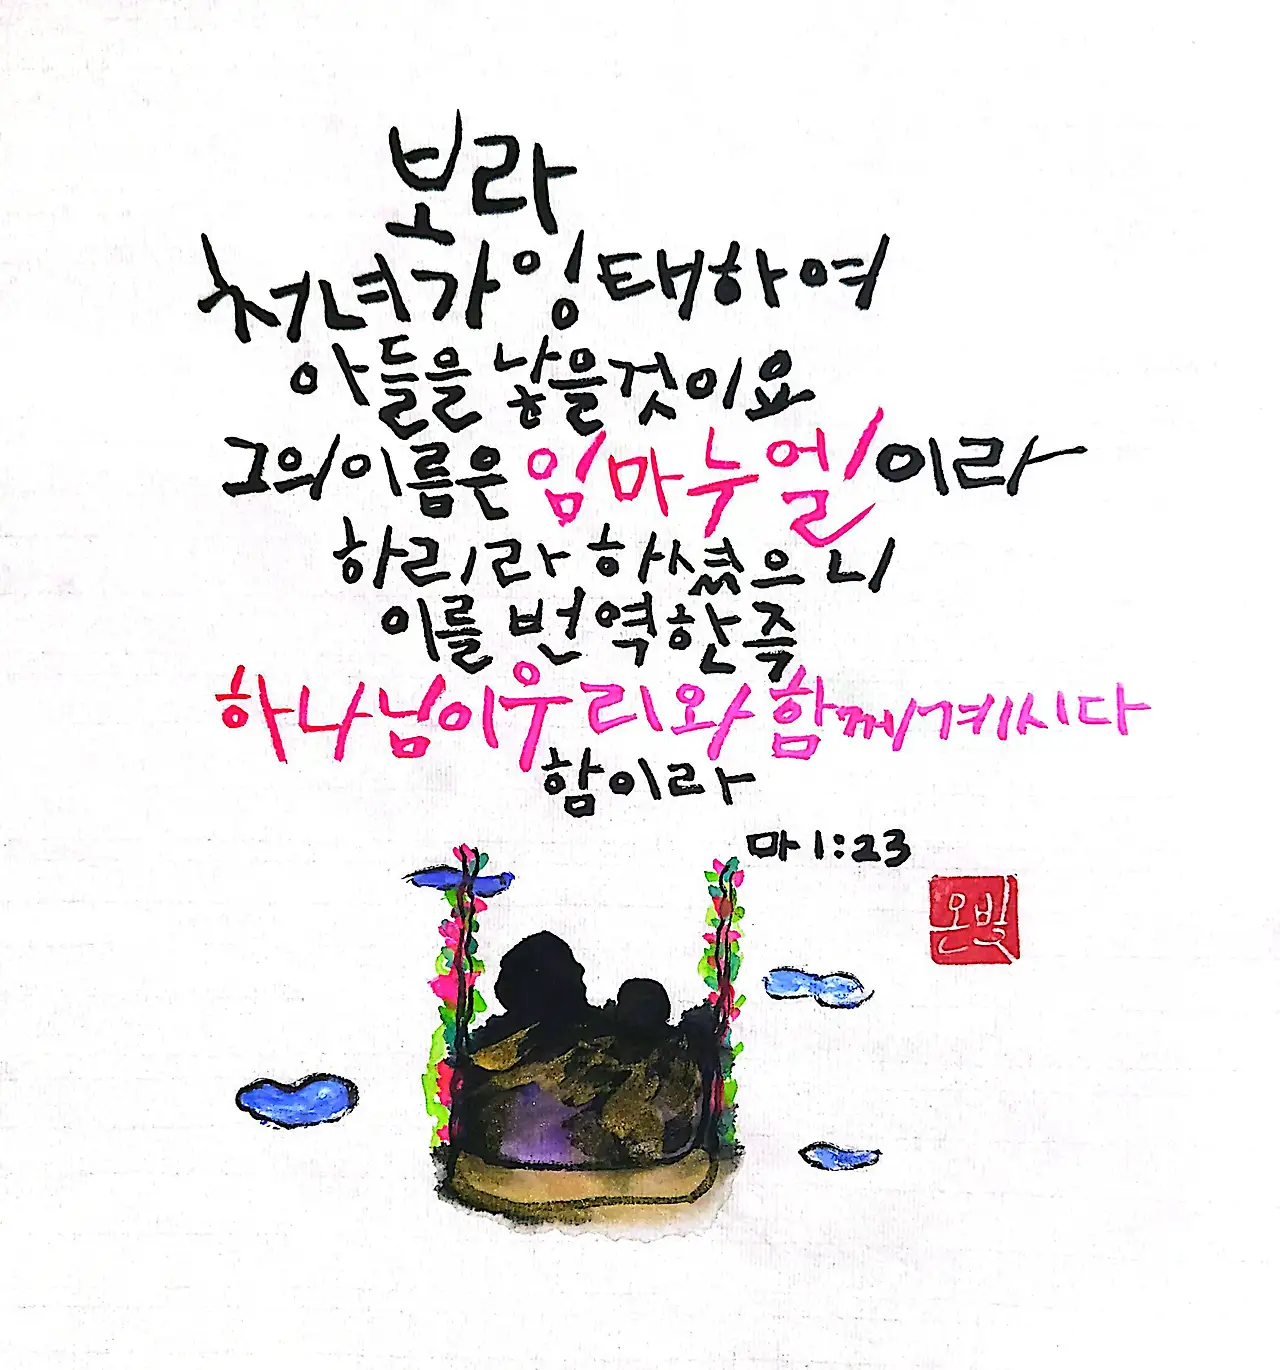 보라
처녀가 잉태하여
아들을 낳을 것이요
그의 이름은 임마누엘이라
하리라 하셨으니
이를 번역한즉
하나님이 우리와 함께 계시다
함이라
마 1:23
온빛